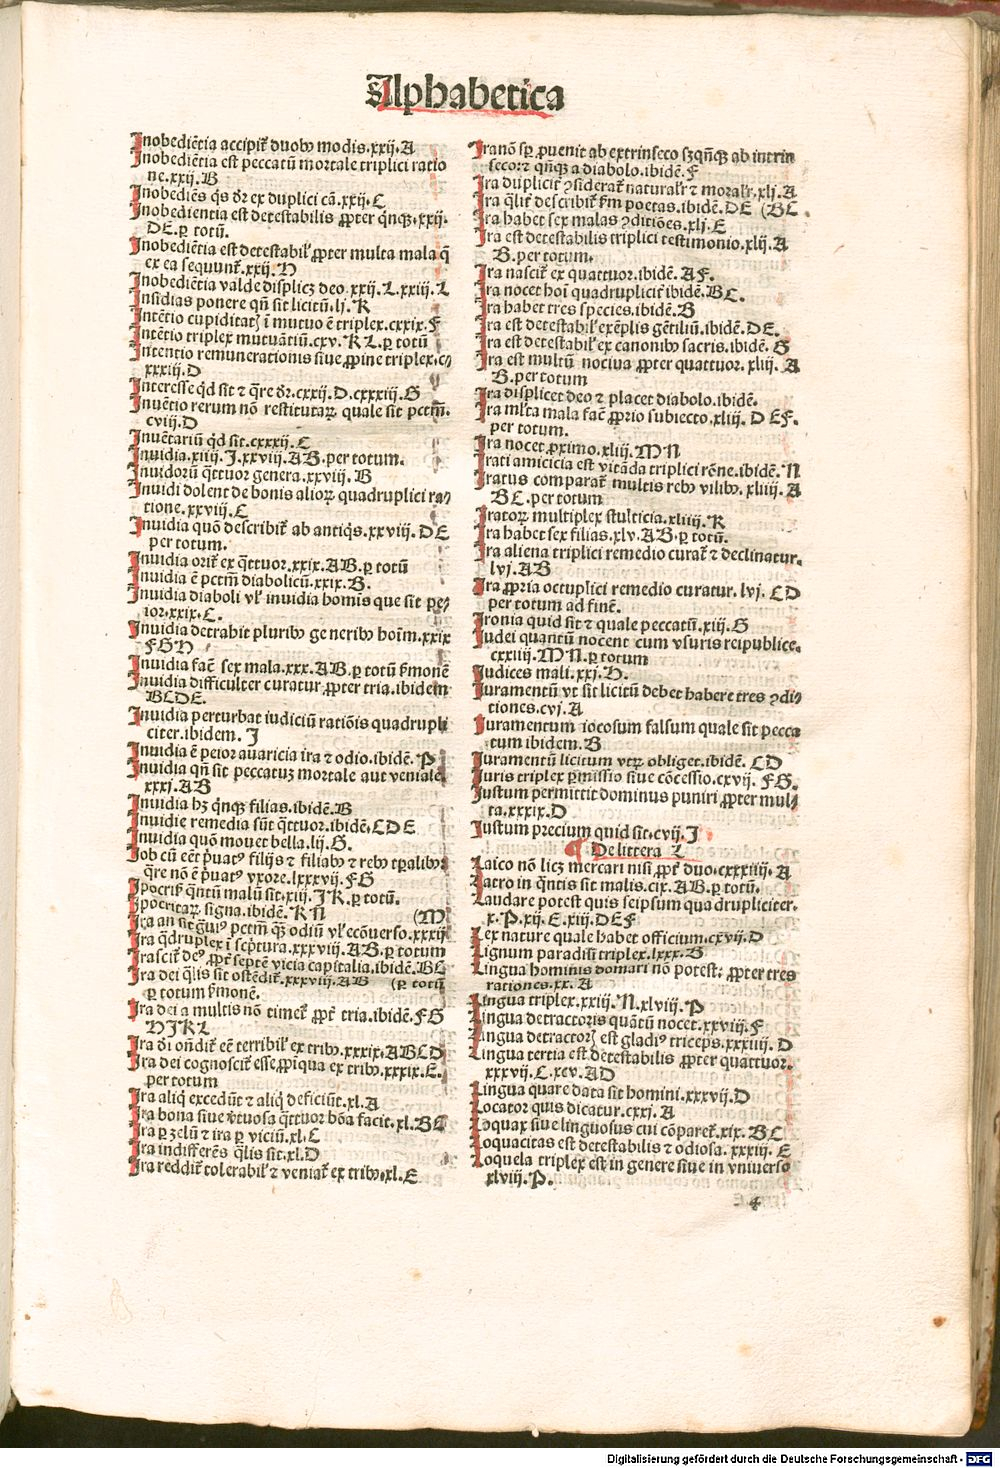 Alphabetica
Inobediẽtia accipit᷑ duobꝰ modis.xxij.A
Inobediẽtia est peccatū mortale triplici ratio
ne.xxij.B
Inobediẽs q̃s dr̃ ex duplici cã.xxij.C
Inobedientia est detestabilis ꝓpter q̃nqꝫ.xxij.
DE.ꝑ totū.
Inobediẽtia est detestabił ꝓpter multa mala q̃
ex ea sequunt᷑.xxij.H
Inobediẽtia valde displicꝫ deo.xxij.L.xxiij.L
Insidias ponere qñ sit licitū.lj.K
Intẽtio cupiditatꝭ ĩ mutuo ẽ triplex.cxxix.F
Intẽtio triplex mutuãtiū.cxv.KL.ꝑ totū
Intentio remunerationis siue ꝓpine triplex.c⸗
xxxiij.D
Interesse qd̃ sit ⁊ q̃re dr̃.cxxij.D.cxxxiij.G
Inuẽtio rerum nõ restitutaꝝ quale sit pctm̃.
cviij.D
Inuẽtariū qd̃ sit.cxxxij.C
Inuidia.xiij.I.xxviij.AB.per totum.
Inuidorū q̃ttuor genera.xxviij.B
Inuidi dolent de bonis alioꝝ quadruplici ra⸗
tione.xxviij.C
Inuidia quõ describit᷑ ab antiq̃s.xxviij.DE
per totum.
Inuidia orit᷑ ex q̃ttuor.xxix.AB.ꝑ totū
Inuidia ẽ pctm̃ diabolicū.xxix.B.
Inuidia diaboli vł inuidia homis que sit pe⸗
ior.xxix.C.
Inuidia detrahit pluribꝰ generibꝰ hoĩm.xxix
FGH
Inuidia facit᷑ sex mala.xxx.AB.ꝑ totū ẜmonẽ
Inuidia difficulter curatur ꝓpter tria.ibidem
BCDE.
Inuidia perturbat iudiciū ratiõis quadrupli
citer.ibidem. I
Inuidia ẽ peior auaricia ira ⁊ odio.ibidẽ.P
Inuidia qñ sit peccatuꝫ mortale aut veniale.
xxxj.AB
Inuidia hꝫ q̃nqꝫ filias.ibidẽ.B
Inuidie remedia sũt q̃ttuor.ibidẽ.CDE
Inuidia quõ mouet bella.lij.G.
Iob cũ eẽt p̃uatꝰ filijs ⁊ filiabꝰ ⁊ rebꝰ tꝑalibꝰ
q̃re nõ ẽ p̃uatꝰ vxore.lxxxvij.FG
Ipocrisꝭ q̃ntũ malũ sit.xiij.IK.ꝑ totū.
Ipocritaꝝ signa.ibidẽ.KN (M
Ira an sit g̃uiꝰ pctm̃ q̃ꝫ odiũ vł ecõuerso.xxxij
Ira q̃druplex ĩ sc̃ptura.xxxviij.AB.ꝑ totum
Irascit᷑ deꝰ ꝓpt᷑ septẽ vicia capitalia.ibidẽ.BC
Ira dei q̃lis sit ostẽdit᷑.xxxviij.AB (ꝑ totū
ꝑ totum ẜmonẽ.
Ira dei a multis nõ timet᷑ ꝓpt᷑ tria.ibidẽ.FG
HIKL
Ira dĩ oñdit᷑ eẽ terribił ex tribꝰ.xxxix.ABCD
Ira dei cognoscit᷑ esse ꝓpĩqua ex tribꝰ.xxxix.E.
per totum
Ira aliq̃ excedũt ⁊ aliq̃ deficiũt.xl.A
Ira bona siue v̾tuosa q̃ttuor bõa facit.xl.BC
Ira ꝑ zelũ ⁊ ira ꝑ viciũ.xl.C
Ira indifferẽs q̃lis sit.xl.D
Ira reddit᷑ tolerabił ⁊ veniat᷑ ex tribꝰ.xl.E
Ira nõ sꝑ ꝓuenit ab extrinseco sꝫ qñqꝫ ab intrin
seco:⁊ qñqꝫ a diabolo.ibidẽ.F
Ira duplicit᷑ ꝯsiderat᷑ naturalr̃ ⁊ moralr̃.xlj.A
Ira q̃lit᷑ describit᷑ ẜm poetas.ibidẽ.DE (BC
Ira habet sex malas ꝯditiões.xlj.E
Ira est detestabilis triplici testimonio.xlij.A
B.per totum.
Ira nascit᷑ ex quattuor.ibidẽ.AF.
Ira nocet hoĩ quadruplicit᷑ ibidẽ.BC.
Ira habet tres species.ibidẽ.B
Ira est detestabił exẽplis gẽtiliũ.ibidẽ.DE.
Ira est detestabił ex canonibꝰ sacris.ibidẽ.G
Ira est multũ nociua ꝓpter quattuor.xliij.A
B.per totum
Ira displicet deo ⁊ placet diabolo.ibidẽ.
Ira ml̃ta mala facit᷑ ꝓprio subiecto.xliij.DEF.
per totum.
Ira nocet ꝓximo.xliij.MN
Irati amicicia est vitãda triplici rõne.ibidẽ.N
Iratus comparat᷑ multis rebꝰ vilibꝰ.xliiij.A
BC.per totum
Iratoꝝ multiplex stulticia.xliiij.K
Ira habet sex filias.xlv.AB.ꝑ totũ.
Ira aliena triplici remedio curat᷑ ⁊ declinatur.
lvj.AB
Ira ꝓpria octuplici remedio curatur.lvj.CD
per totum ad finẽ.
Ironia quid sit ⁊ quale peccatũ.xiij.G
Iudei quantũ nocent cum vsuris reipublice.
cxxiiij.MN.ꝑ totum
Iudices mali.xxj.H.
Iuramentũ vt sit licitũ debet habere tres ꝯdi⸗
tiones.cvj.A
Iuramentum iocosum falsum quale sit pecca
tum ibidem.B
Iuramentũ licitum vtꝝ obliget.ibidẽ.CD
Iuris triplex ꝑmissio siue cõcessio.cxvij.FG.
Iustum permittit dominus puniri ꝓpter mul⸗
ta.xxxix.D
Iustum precium quid sit.cvij.I
¶ De littera L
Laico nõ licꝫ mercari nisi ꝓpt᷑ duo.cxxxiiij.A
Latro in q̃ntis sit malis.cix.AB.ꝑ totũ.
Laudare potest quis seipsum quadrupliciter.
x.P.xij.E.xiij.DEF
Lex nature quale habet officium.cxvij.D
Lignum paradisi triplex.lxxx.B
Lingua hominis domari nõ potest: ꝓpter tres
rationes.xx.A
Lingua triplex.xxiij.N.xlviij.P
Lingua detractoris quãtũ nocet.xxviij.F
Lingua detractorꝭ est gladiꝰ triceps.xxxiiij.D
Lingua tertia est detestabilis ꝓpter quattuor.
xxxvij.C.xcv.AD
Lingua quare data sit homini.xxxvij.D
Locator quis dicatur.cxxj.A
Loquax siue linguosus cui cõparet᷑.xix.BC
Loquacitas est detestabilis ⁊ odiosa.xxxiij.E
Loquela triplex est in genere siue in vniuerso
xlviij.P.
4
Digitalisierung gefördert durch die Deutsche Forschungsgemeinschaft - DFG